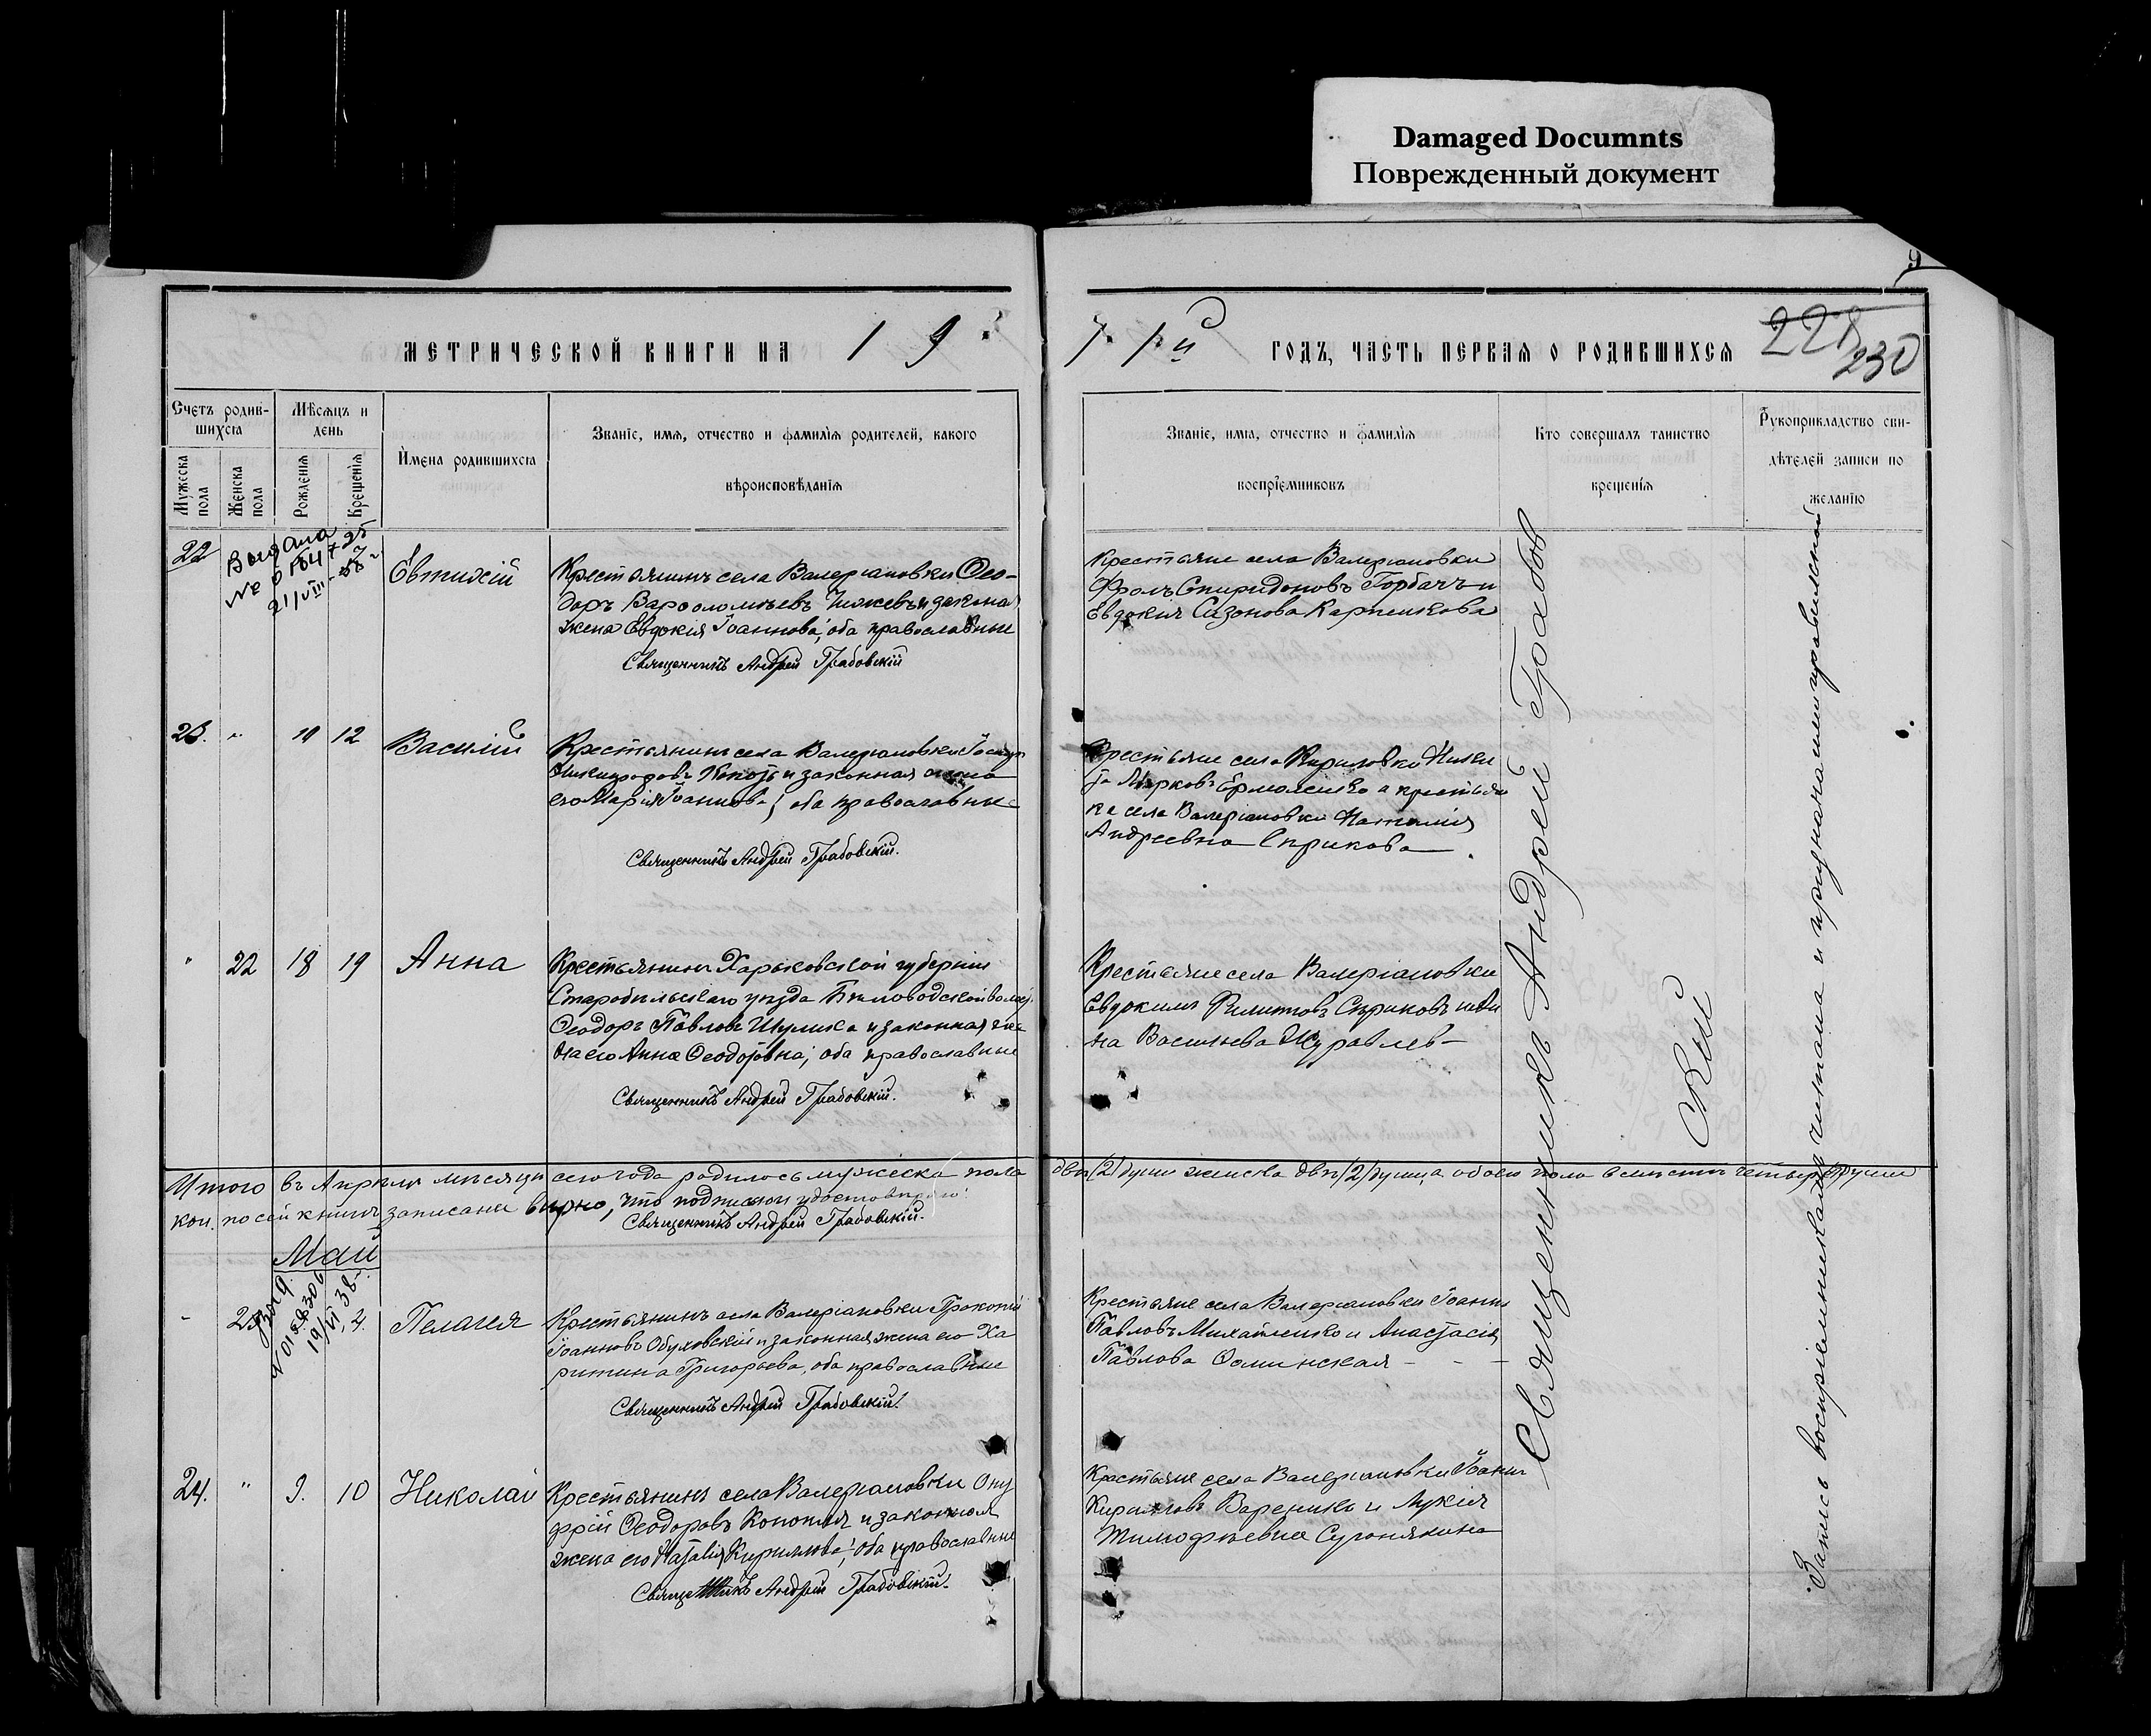 Damaged Documnts
Поврежденный документ
9
МЕТРИЧЕСКОЙ КНИГИ НА 19
11й ГОДЪ, ЧАСТЬ ПЕРВАЯ О РОДИВШИХСЯ
228
230
Счетъ родив-
шихся
Мѣсяцъ и
день
Мужеска
пола
Женска
пола
Рожденія
Крещенія
Имена родившихся
Званіе, имя, отчество и фамилія родителей, какого
вѣроисповѣданія
Званіе, имя, отчество и фамилія
воспріемниковъ
Кто совершалъ таинство
крещенія
Рукоприкладство сви-
дѣтелей записи по
желанію
22
Евтихій
Крестьянинъ села Валеріановки Ѳео-
доръ Варѳоломѣевъ и закона
жена Евдокія Іоаннова, оба православные
Священникъ Андрей Грабовскій
Крестьяне села Валеріановки
Фролъ Спиридоновъ Горбачъ и
Евдокія Сизонова Карпенкова
23. " 12
Василій
Крестьянинъ села Валеріановки
Никифоровъ и законная жена
его Марія Іоаннова, оба православные
Священникъ Андрей Грабовскій.
Крестьяне села Кириловки Ники
та Марковъ Ермоленко а крестьян
ка села Валеріановки Наталія
Андреевна Сирикова
" 22 18 19
Анна
Крестьянинъ Харьковской губерніи
Старобѣльскаго уѣзда Бѣловодской волос.
Ѳеодоръ Павловъ Шулика и законная же
на его Анна Ѳеодоровна, оба православные
Священникъ Андрей Грабовскій.
Крестьяне села Валеріановки
Евдокимъ Филиповъ Сириковъ и
на Васильева Журавлев-
Итого въ Апрѣлѣ мѣсяцѣ сего года родилось мужеска пола
двѣ /2/ души женска двѣ /2/ души, а обоего пола вмѣстѣ четыре души
кои по сей книгѣ записаны вѣрно, что подписью удостовѣряю:
Священникъ Андрей Грабовскій.
Май
- 2.
Пелагея
Крестьянинъ села Валеріановки Прокопій
Іоанновъ Обуховскій и законная жена его Ха
ритина Григорьева, оба православные
Священникъ Андрей Грабовскій.
Крестьяне села Валеріановки Іоаннъ
Павловъ Михайленко и Анастасія
Павлова Ѳоминская - - -
24. " 9. 10
Николай
Крестьянинъ села Валеріановки Ону
фрій Ѳеодоровъ Конопля и законная
жена его Наталія Кириллова, оба православные
Священникъ Андрей Грабовскій.
Крестьяне села Валеріановки Іоаннъ
Кириловъ Вареникъ и Лукія
Тимофѣевна Сугонякина
Священникъ Андрей Грабов
скій
Запись воспріемниками читана и признана ими правильной